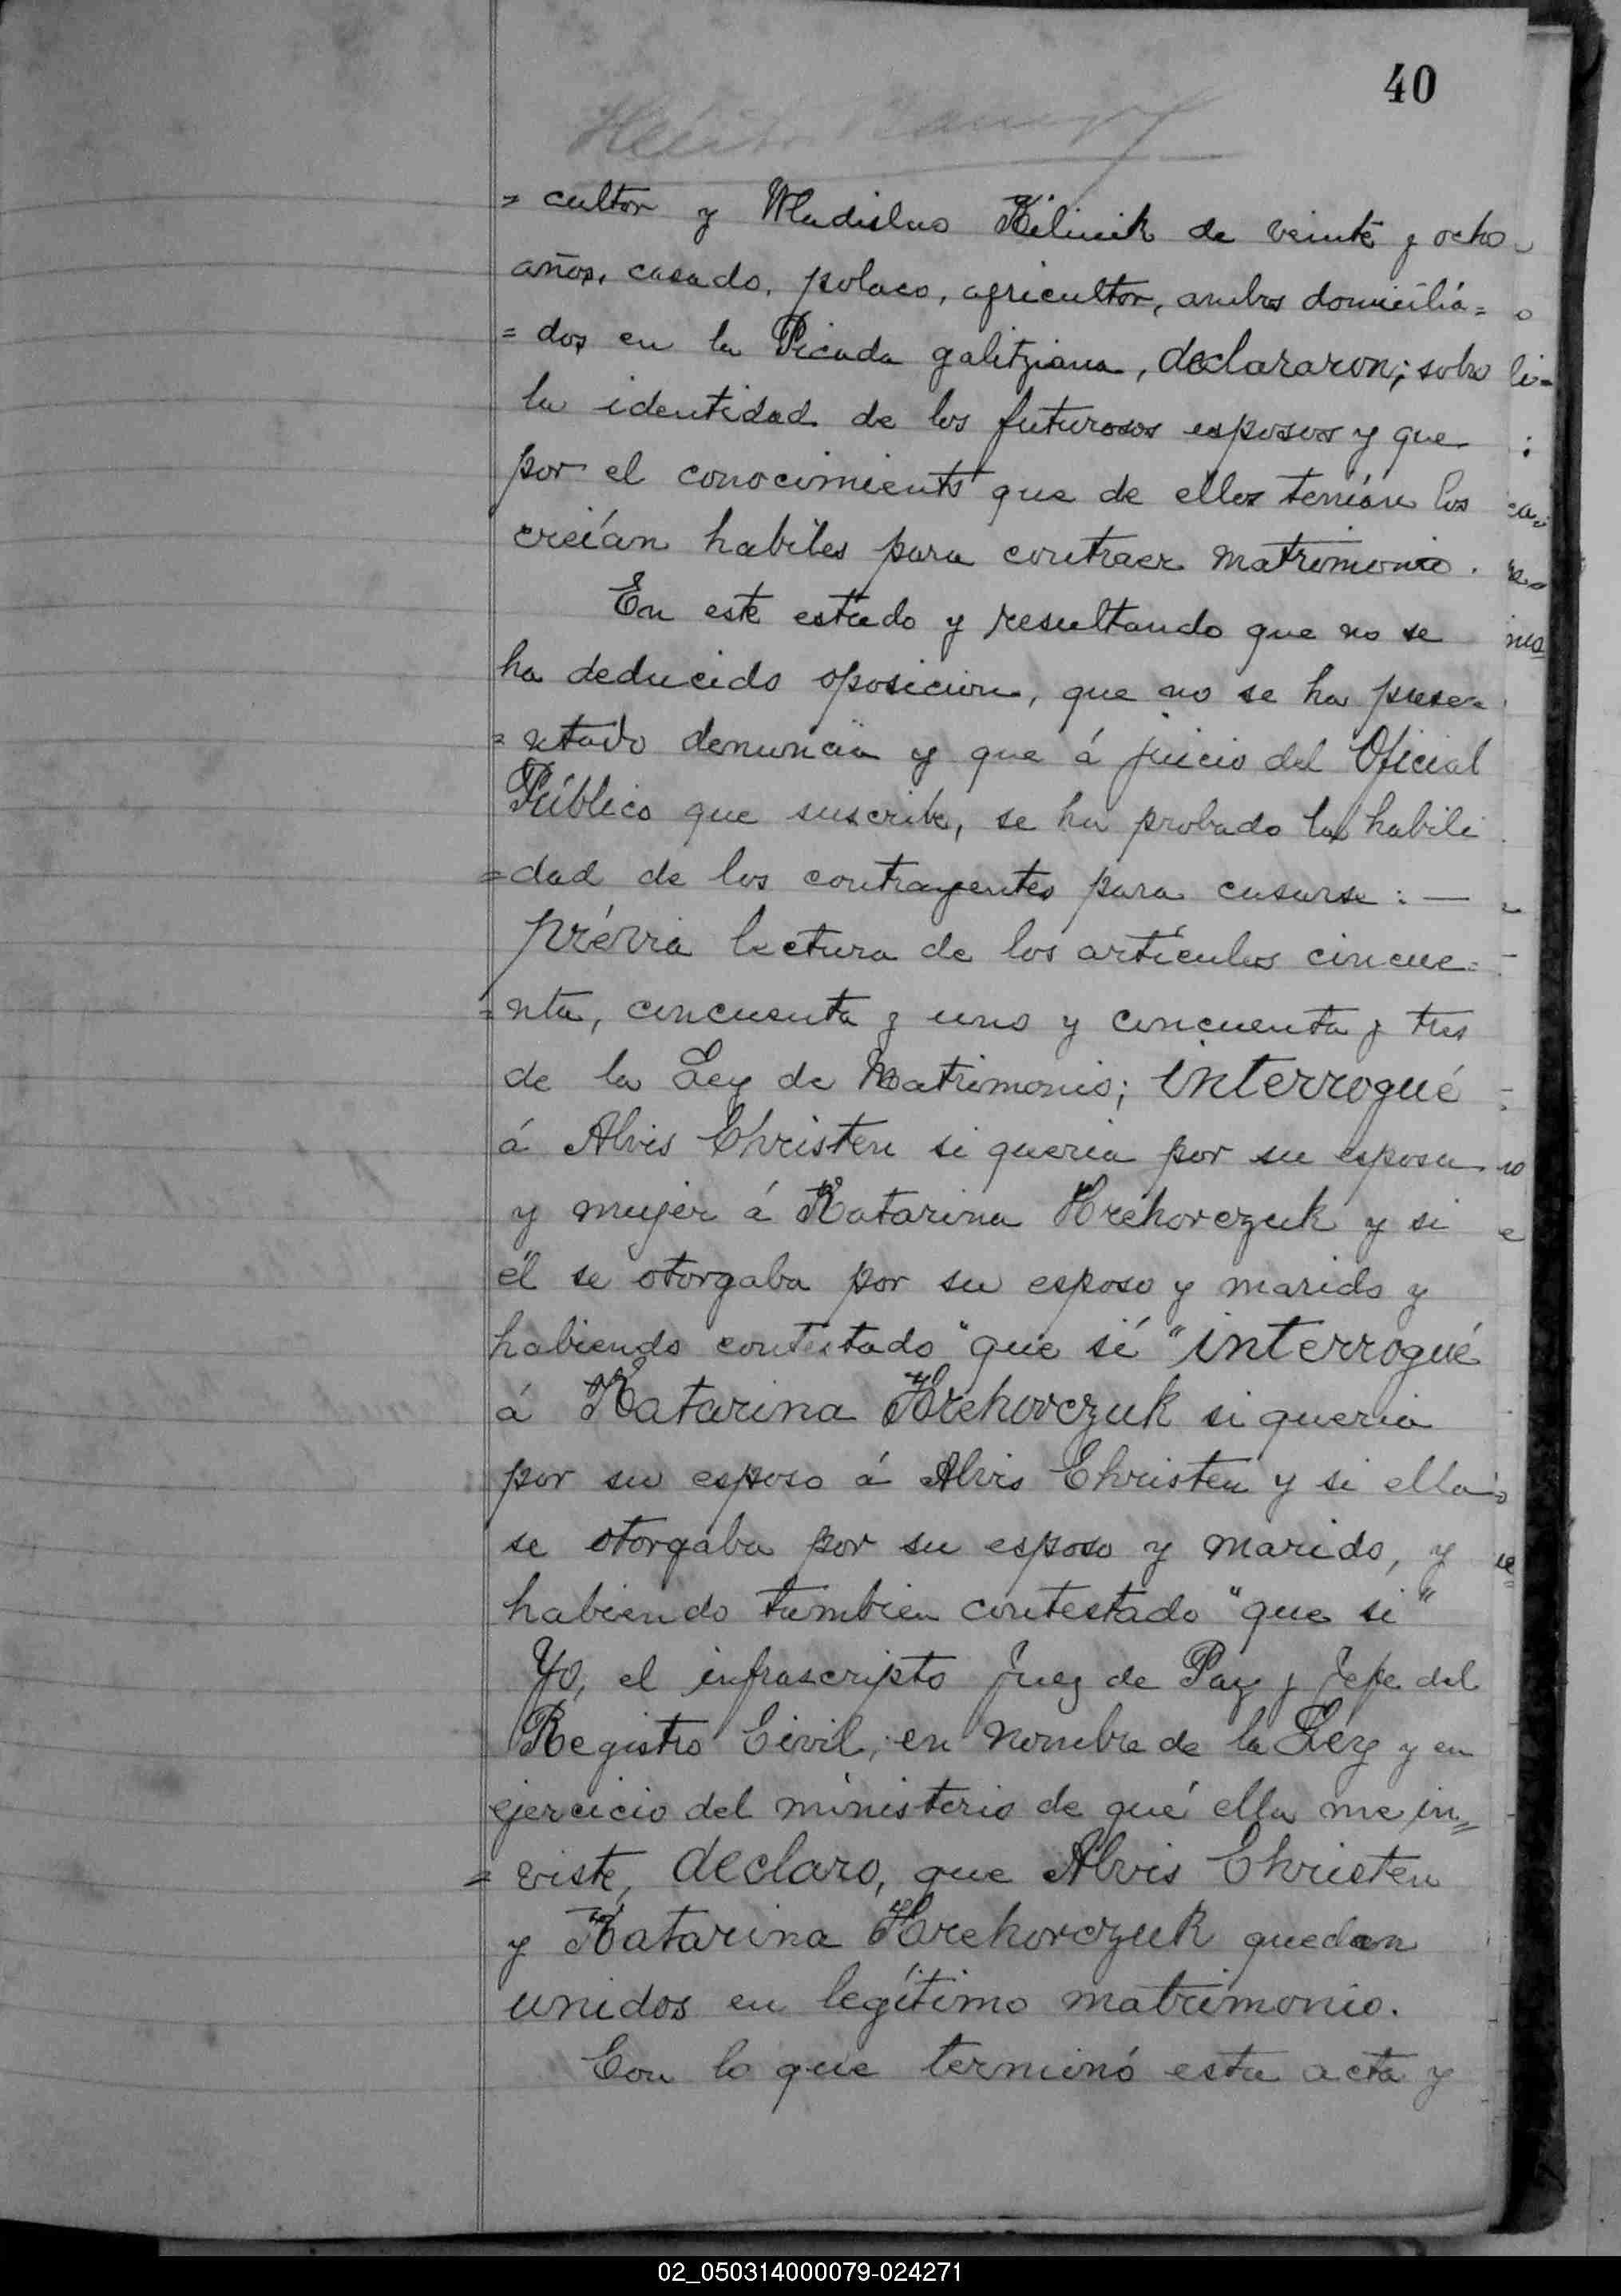 40
= cultor y Wladislao Kilinik de veinte y ocho
años, casado, polaco, agricultor, ambos domicilia=
= dos en la Picada galitziana, declararon; sobre
la identidad de los futuros esposos y que
por el conocimiento que de ellos tenían los
creían habiles para contraer matrimonio.
En este estado y resultando que no se
ha deducido oposicion, que no se ha prese=
= ntado denuncia y que á juicio del Oficial
Público que suscribe, se ha probado la habili
= dad de los contrayentes para casarse: —
prévia lectura de los artículos cincue=
= nta, cincuenta y uno y cincuenta y tres
de la Ley de Matrimonio; interrogué
á Alvis Christen si queria por su esposa
y mujer á Katarina Hrehorczuk y si
él se otorgaba por su esposo y marido y
habiendo contestado "que sí" interrogué
á Katarina Hrehorczuk si queria
por su esposo á Alvis Christen y si ella
se otorgaba por su esposo y marido, y
habiendo tambien contestado "que si"
Yo, el infrascripto Juez de Paz y Jefe del
Registro Civil, en nombre de la Ley y en
ejercicio del ministerio de qué ella me in=
= viste, declaro, que Alvis Christen
y Katarina Hrehorczuk quedan
unidos en legítimo matrimonio.
Con lo que terminó esta acta y
02_050314000079-024271